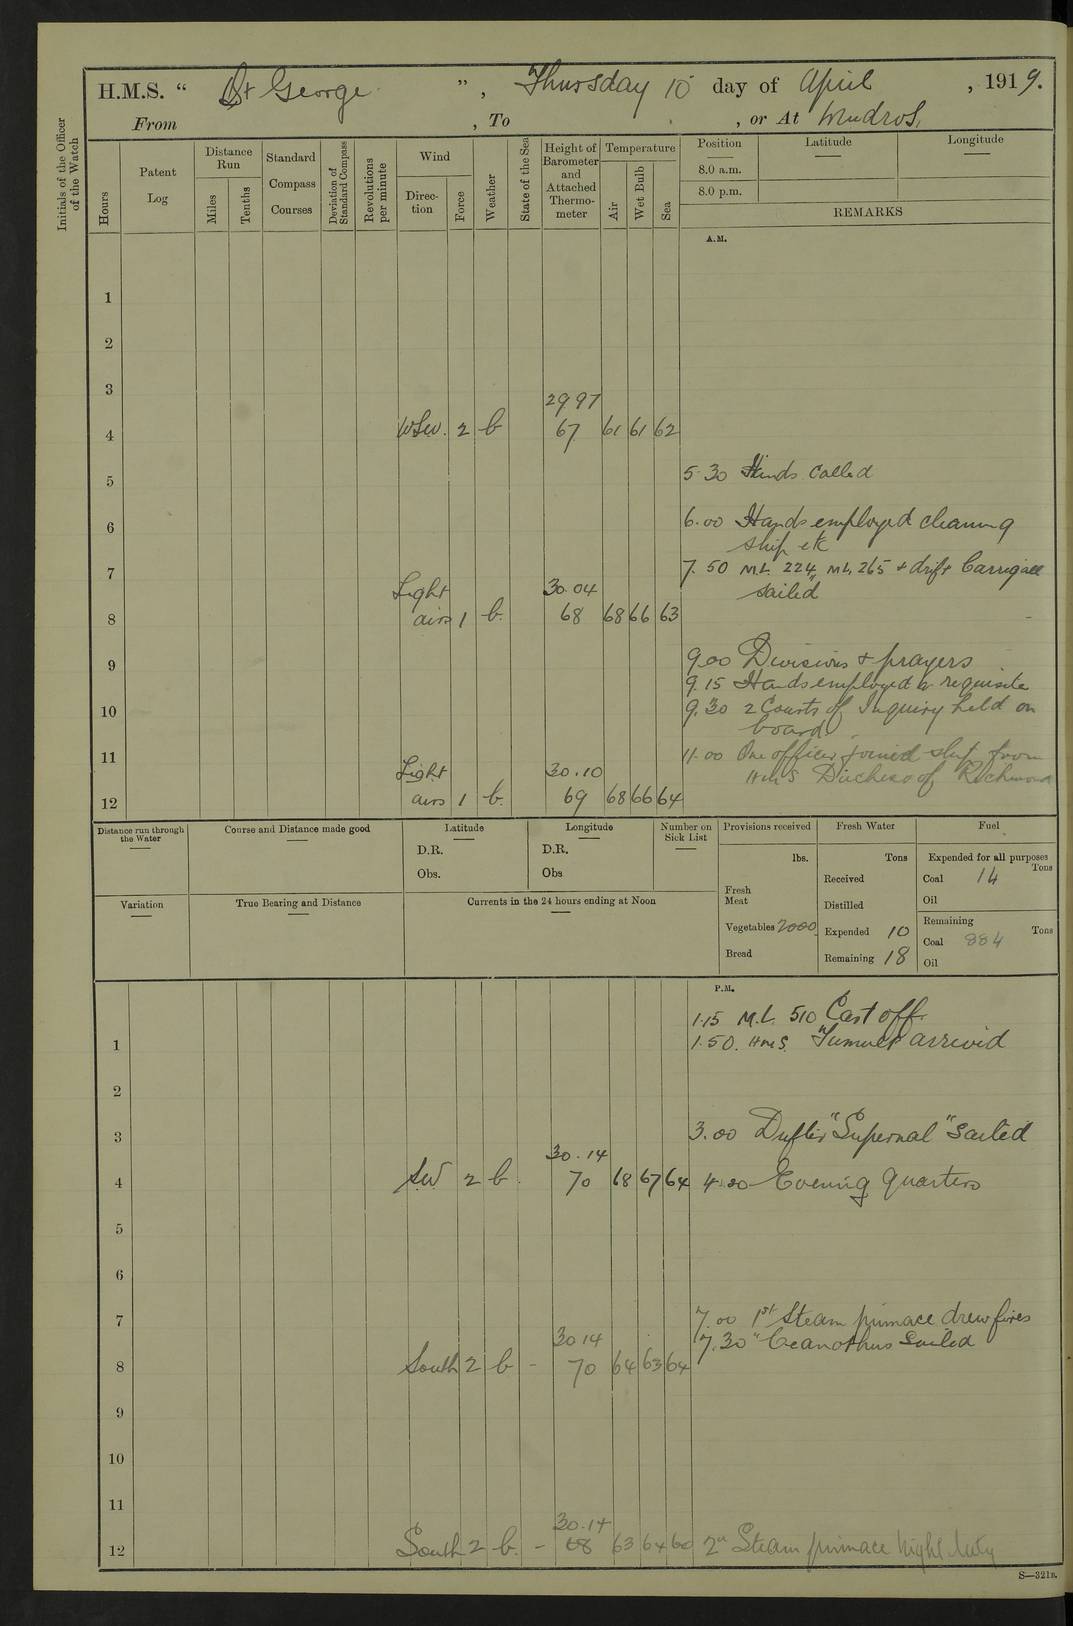 H.M.S. “ St George ” , Thursday 10 day of April , 1919.
From , To , or At Mudros.
Initials of the Officer of the Watch
Hours
Patent Log
Distance Run
Miles
Tenths
Standard Compass Courses
Deviation of Standard Compass
Revolutions per minute
Wind
Direction
Force
Weather
State of the Sea
Height of Barometer and Attached Thermometer
Temperature
Air
Wet Bulb
Sea
Position
8.0 a.m.
8.0 p.m.
Latitude
Longitude
REMARKS
A.M.
1
2
3
29 97
4 WSW. 2 b 67 61 61 62
5 5.30 Hands called
6 6.00 Hands employed cleaning
ship etc
7 7.50 M.L. 224, M.L. 265 + drift Carrigart
Light 30.04 sailed
8 airs 1 b. 68 68 66 63
9 9.00 Divisions + prayers
9.15 Hands employed as requisite
10 9.30 2 Courts of Inquiry held on
board
11 11.00 One officer joined ship from
Light 30.10 HMS Duchess of Richmond
12 airs 1 b. 69 68 66 64
Distance run through the Water
Course and Distance made good
Latitude
D.R.
Obs.
Longitude
D.R.
Obs
Number on Sick List
Provisions received
lbs.
Fresh Meat
Vegetables 2000
Bread
Fresh Water
Tons
Received
Distilled
Expended 10
Remaining 18
Fuel
Expended for all purposes
Tons
Coal 14
Oil
Remaining
Tons
Coal 884
Oil
Variation
True Bearing and Distance
Currents in the 24 hours ending at Noon
P.M.
1.15 M.L. 510 Cast off.
1 1.50. HMS. "Tumult arrived
2
3 3.00 Drifter "Supernal" sailed
30.14
4 SW 2 b. 70 68 67 64 4.00 Evening Quarters
5
6
7 7.00 1st Steam pinnace drew fires
30 14 7.30 "Ceanothus sailed
8 South 2 b - 70 64 63 64
9
10
11
30.14
12 South 2 b. - 68 63 64 60 2nd Steam pinnace night duty
S—321B.